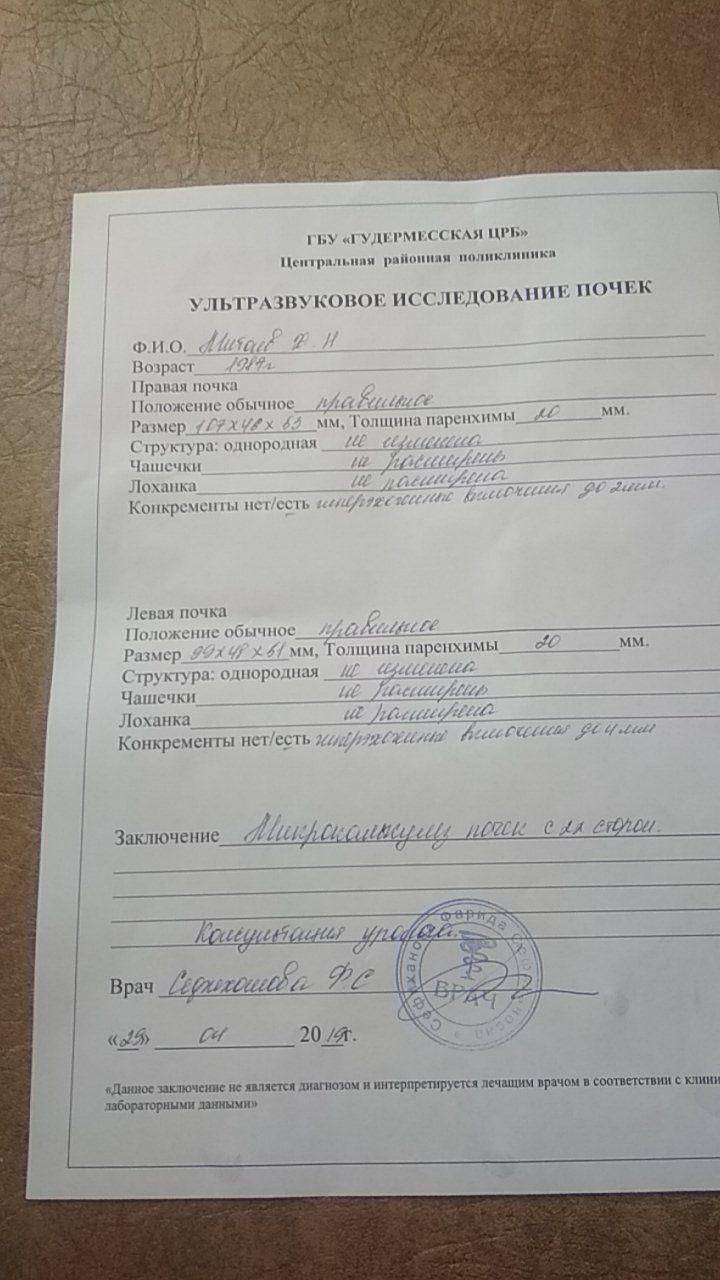 ГБУ «ГУДЕРМЕССКАЯ ЦРБ»
Центральная районная поликлиника
УЛЬТРАЗВУКОВОЕ ИССЛЕДОВАНИЕ ПОЧЕК
Ф.И.О. Митаев Х. Н
Возраст 1989г
Правая почка
Положение обычное правильное
Размер 107х48х53 мм, Толщина паренхимы 20 мм.
Структура: однородная не изменена
Чашечки не расширены
Лоханка не расширена
Конкременты нет/есть гиперэхогенные включения до 2мм.
Левая почка
Положение обычное правильное
Размер 99х48х51 мм, Толщина паренхимы 20 мм.
Структура: однородная не изменена
Чашечки не расширены
Лоханка не расширена
Конкременты нет/есть гиперэхогенные включения до 4 мм
Заключение Микрокалькулез почек с 2х сторон.
Консультация уролога.
Врач Ф.С
ВРАЧ
«29» 04 2019г.
«Данное заключение не является диагнозом и интерпретируется лечащим врачом в соответствии с клини
лабораторными данными»